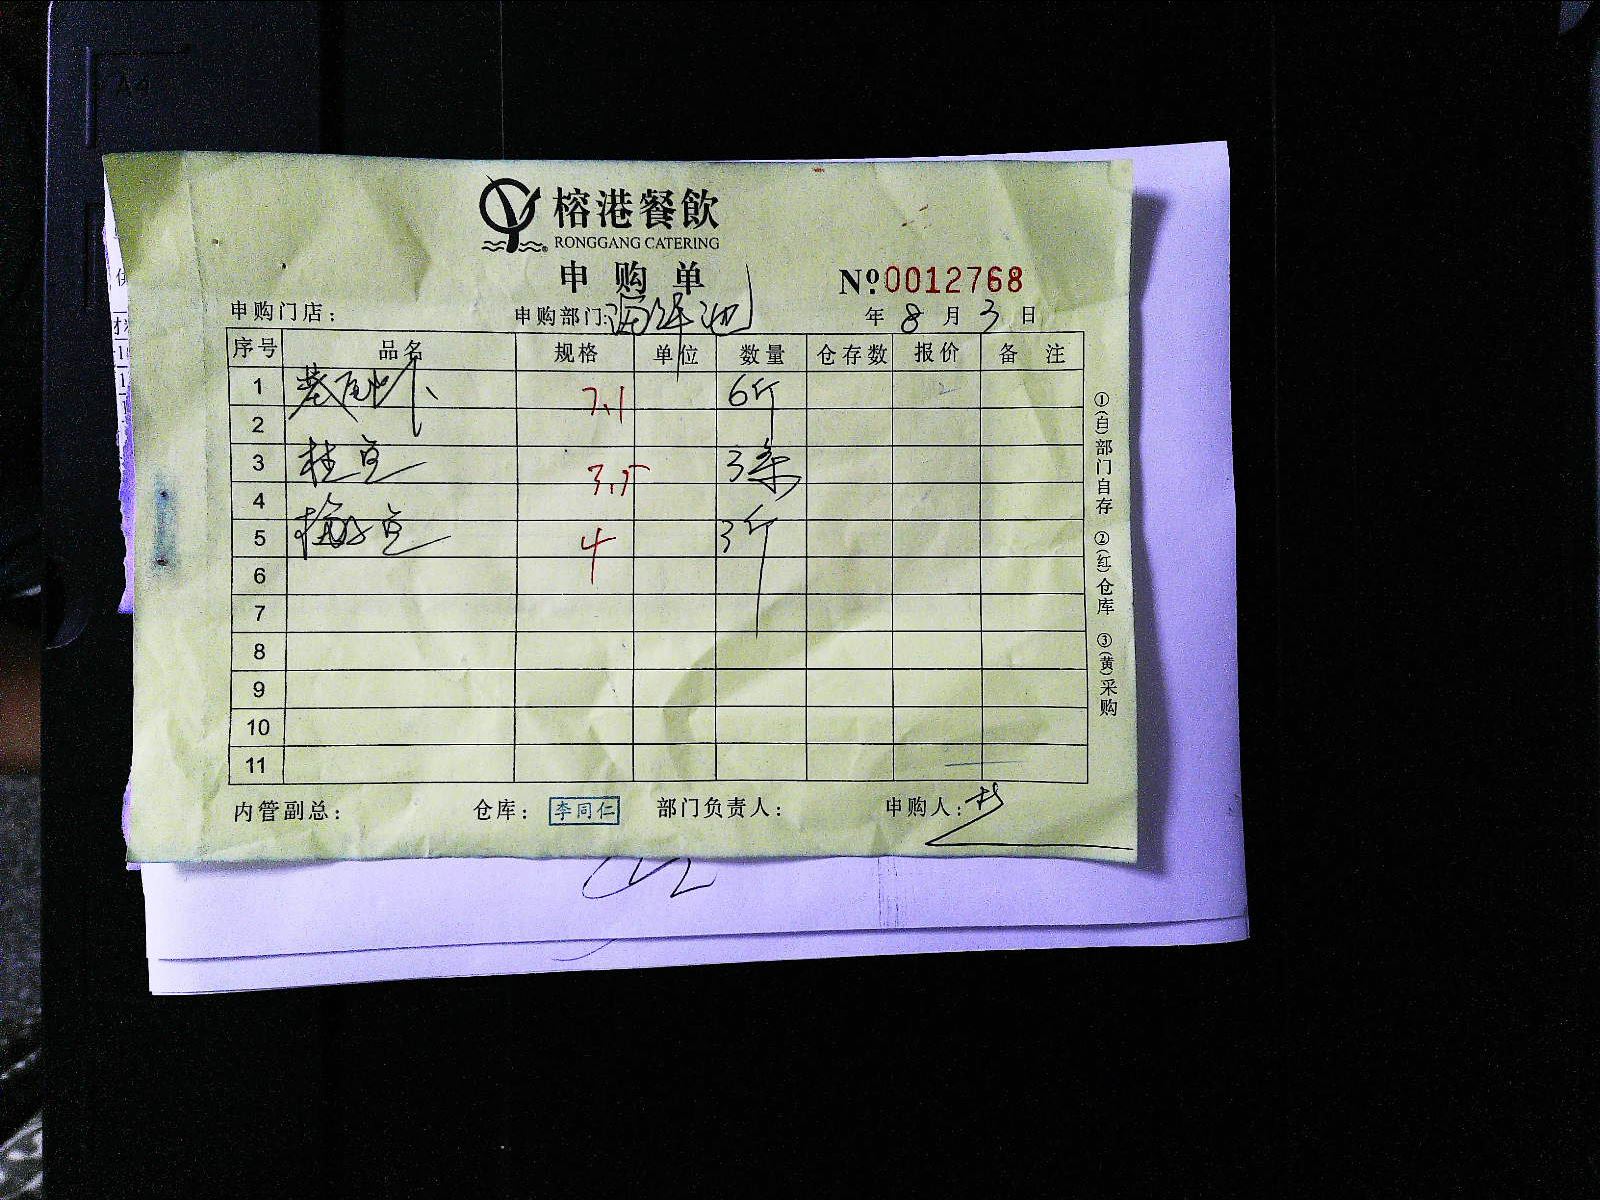 榕港餐飲
RONGGANG CATERING
申购单
Nº0012768
申购门店： 申购部门:海鲜池 年 8 月 3 日
序号 品名 规格 单位 数量 仓存数 报价 备注
1 基尾虾 7.1 6斤
2
3 桂鱼 3.5 3条
4
5 4 3斤
6
7
8
9
10
11
①(白)部门自存 ②(红)仓库 ③(黄)采购
内管副总： 仓库：李同仁 部门负责人： 申购人：
A4